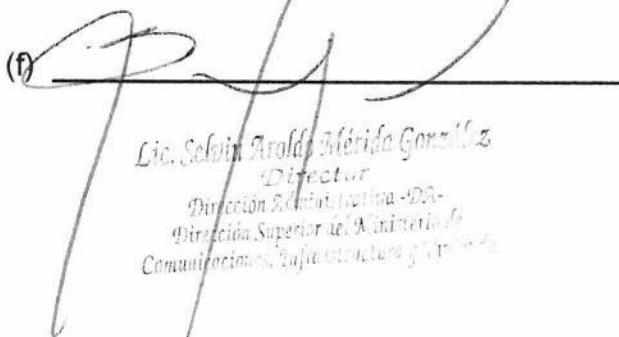 (f)
Lic. Selvin Aroldo Mérida González
Director
Dirección Administrativa -DA-
Dirección Superior del Ministerio de
Comunicaciones, Infraestructura y Vivienda